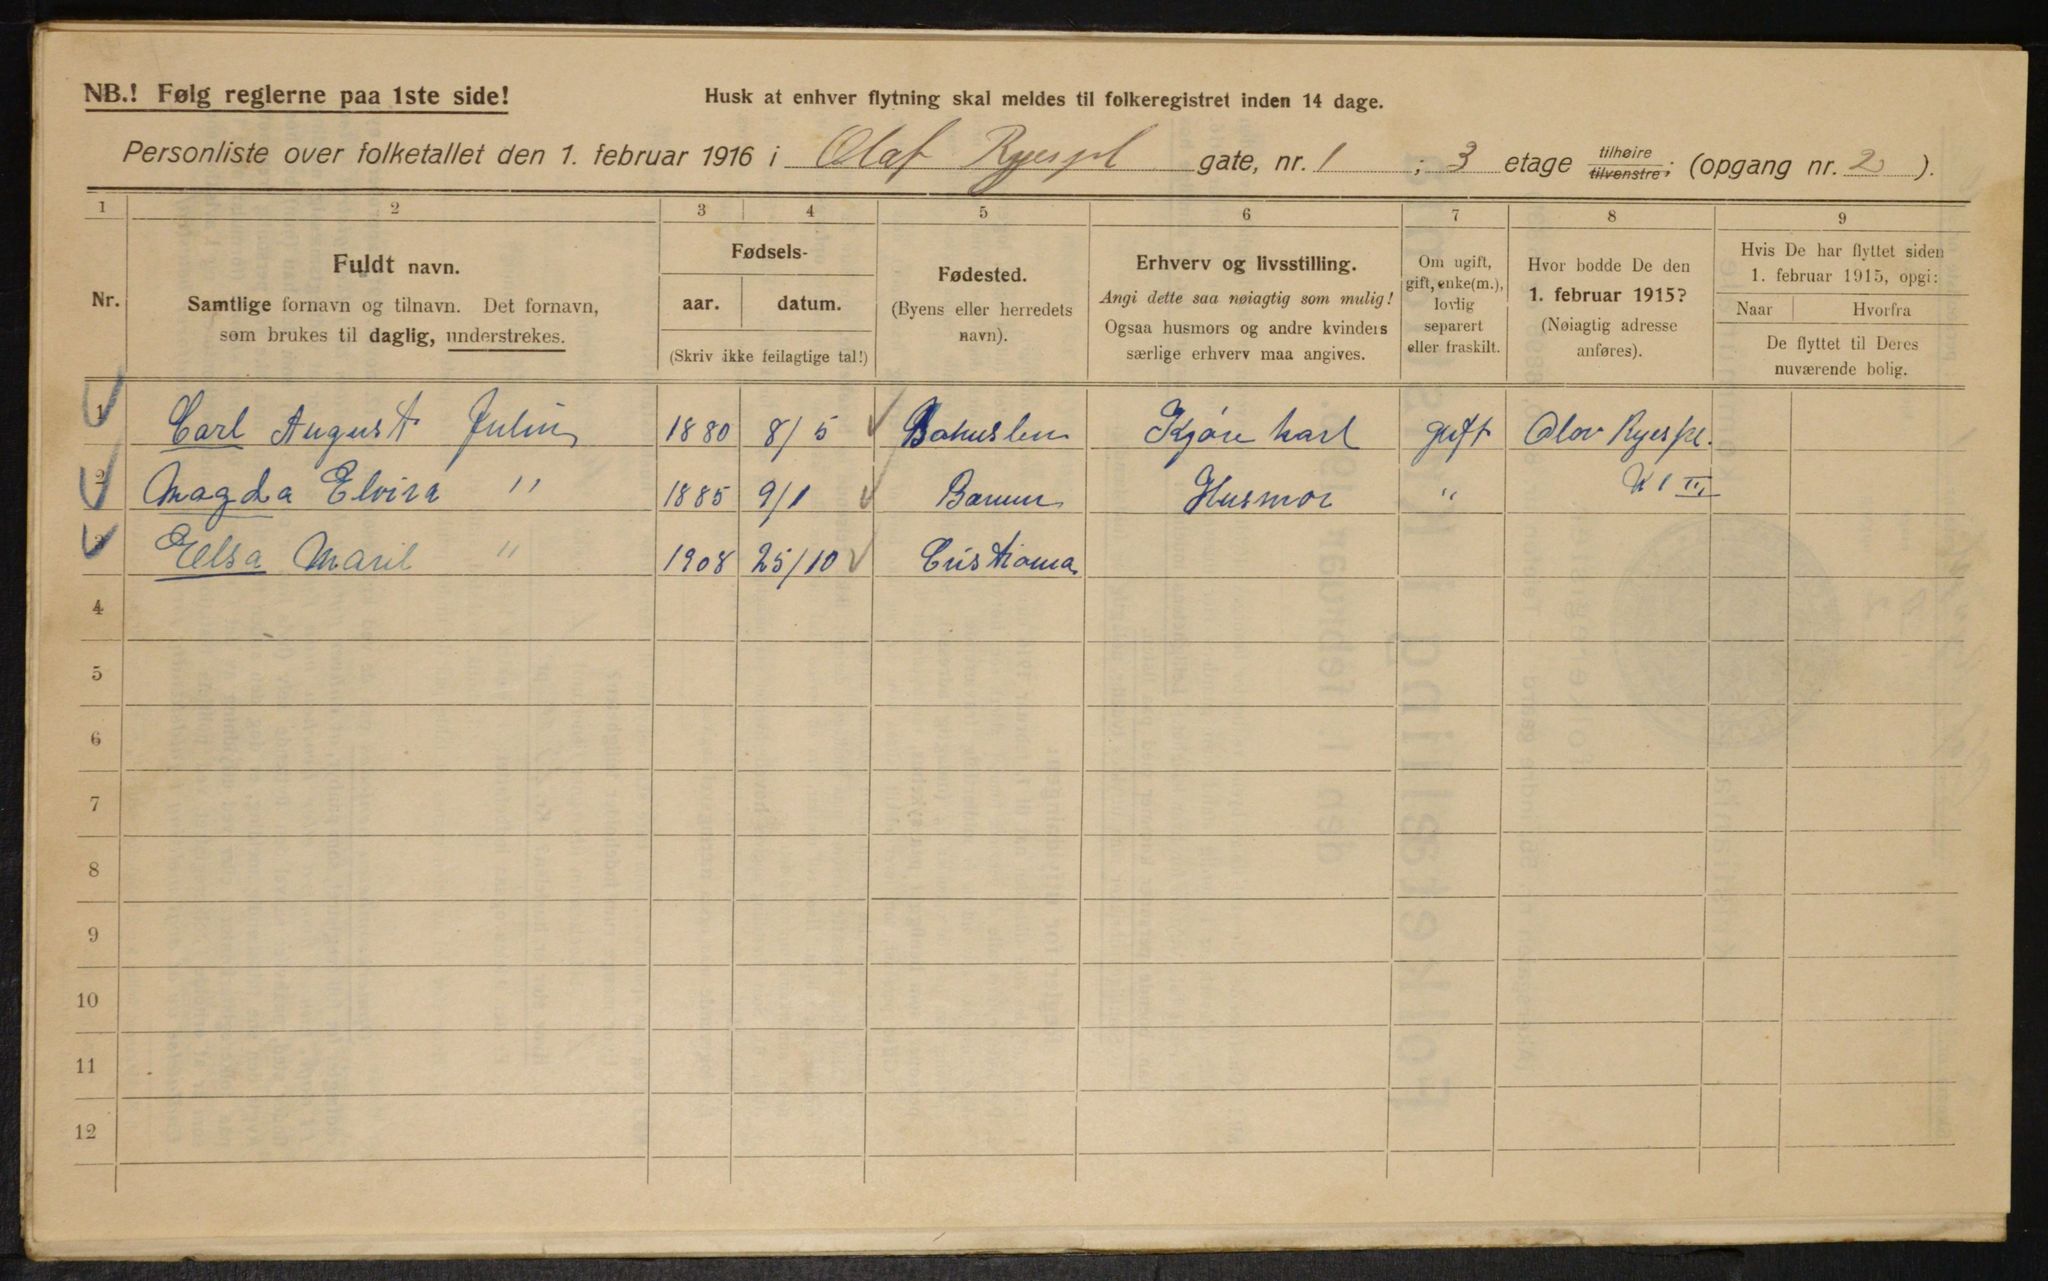 NB.! Følg reglerne paa 1ste side!
Husk at enhver flytning skal meldes til folkeregistret inden 14 dage.
Personliste over folketallet den 1. februar 1916 i Olaf Ryespl gate, nr. 1 ; 3 etage tilhøire tilvenstre; (opgang nr. 2).
1 2 3 4 5 6 7 8 9
Nr.
Fuldt navn.
Samtlige fornavn og tilnavn. Det fornavn,
som brukes til daglig, understrekes.
Fødsels-
aar. datum.
(Skriv ikke feilagtige tal!)
Fødested.
(Byens eller herredets
navn).
Erhverv og livsstilling.
Angi dette saa nøiagtig som mulig!
Ogsaa husmors og andre kvinders
særlige erhverv maa angives.
Om ugift,
gift, enke(m.),
lovlig
separert
eller fraskilt.
Hvor bodde De den
1. februar 1915?
(Nøiagtig adresse
anføres).
Hvis De har flyttet siden
1. februar 1915, opgi:
Naar Hvorfra
De flyttet til Deres
nuværende bolig.
1 Carl August Julin 1880 8/5 Bohuslen Kjøre karl gift Olov Ryespl.
2 Magda Elvira " 1885 9/1 Barum Husmor " N 1 III
3 Ellsa Maril " 1908 25/10 Cristiania
4
5
6
7
8
9
10
11
12